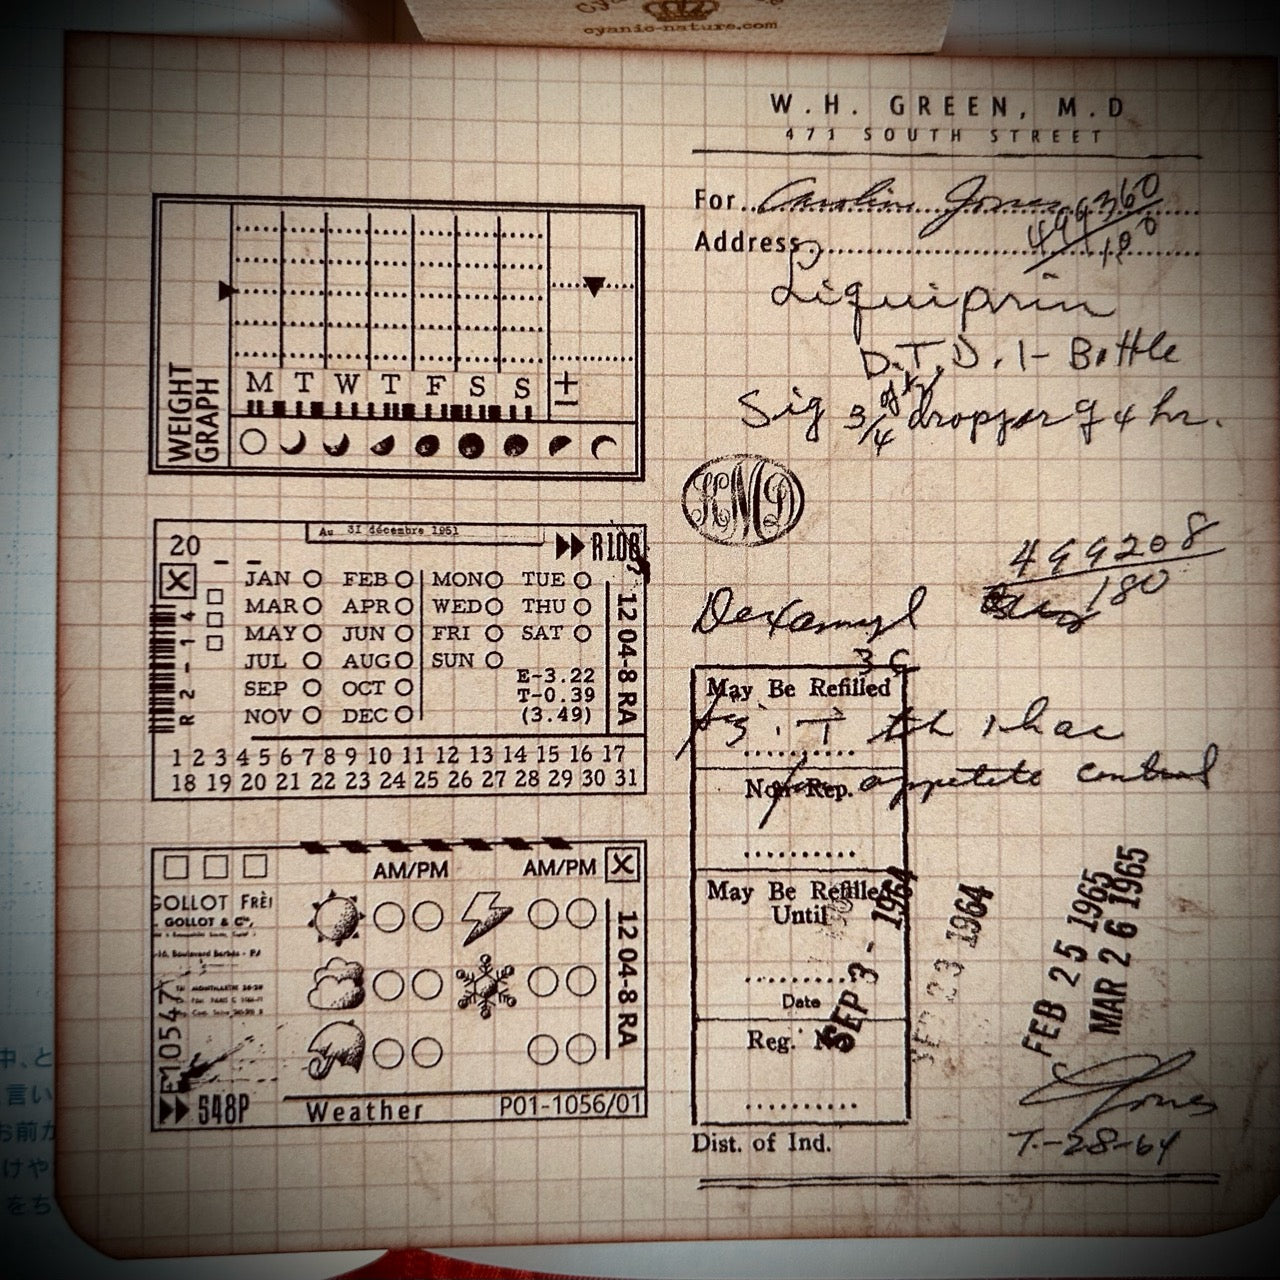 cyanic-nature.com
W.H. GREEN, M.D
471 SOUTH STREET
For Caroline Jones
499360
180
Address
Liquiprin
D.T.D. 1- Bottle
Sig 3/4 dropper q 4 hr.
HMD
499208
180
Dexamyl
May Be Refilled
Non-Rep.
appetite control
May Be Refilled
Until
SEP 3 - 1964
SEP 23 1964
FEB 25 1965
MAR 26 1965
Date
Reg.
Jones
7-28-64
Dist. of Ind.
WEIGHT
GRAPH
M T W T F S S ±
Au 31 décembre 1951
20
R108
X
JAN FEB MON TUE
MAR APR WED THU
MAY JUN FRI SAT
JUL AUG SUN
SEP OCT
NOV DEC
E-3.22
T-0.39
(3.49)
R 2 - 14
12 04-8 RA
1 2 3 4 5 6 7 8 9 10 11 12 13 14 15 16 17
18 19 20 21 22 23 24 25 26 27 28 29 30 31
AM/PM AM/PM X
GOLLOT FRÈ
GOLLOT & Cie,
12 04-8 RA
F10547
548P
Weather
P01-1056/01
中、と
言い
お前が
けや
をち